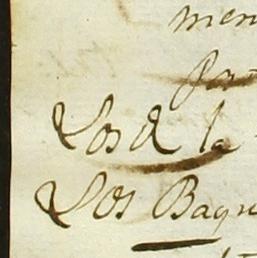 men
Por
Los de la
Los Baqu